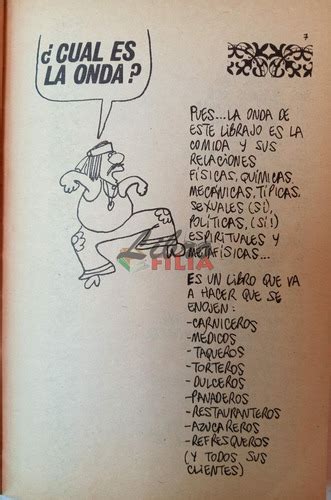 ¿CUAL ES
LA ONDA?
7
PUES...LA ONDA DE
ESTE LIBRAJO ES LA
COMIDA Y SUS
RELACIONES
FÍSICAS, QUÍMICAS,
MECÁNICAS, TÍPICAS,
SEXUALES (SÍ),
POLÍTICAS, (SÍ!)
ESPIRITUALES Y
METAFÍSICAS...
Libros
FILIA
ES UN LIBRO QUE VA
A HACER QUE SE
ENOJEN:
-CARNICEROS
-MÉDICOS
-TAQUEROS
-TORTEROS
-DULCEROS
-PANADEROS
-RESTAURANTEROS
-AZUCAREROS
-REFRESQUEROS
(Y TODOS SUS
CLIENTES)